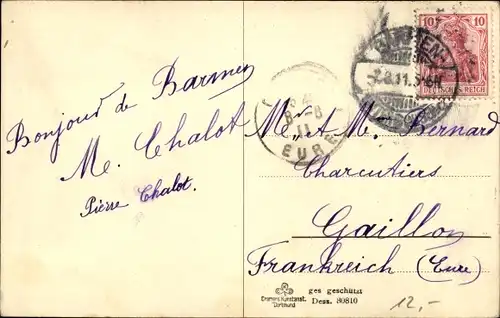 Bonjour de Barmen
M. Chalot
Pierre Chalot.
10 10
DEUTSCHES REICH
BARMEN
8-8
11
EURE
M. et M. Bernard
Charcutiers
Gaillon
Frankreich (Eure)
Cramers Kunstanst.
Dortmund
ges geschützt
Dess. 30810
12,-